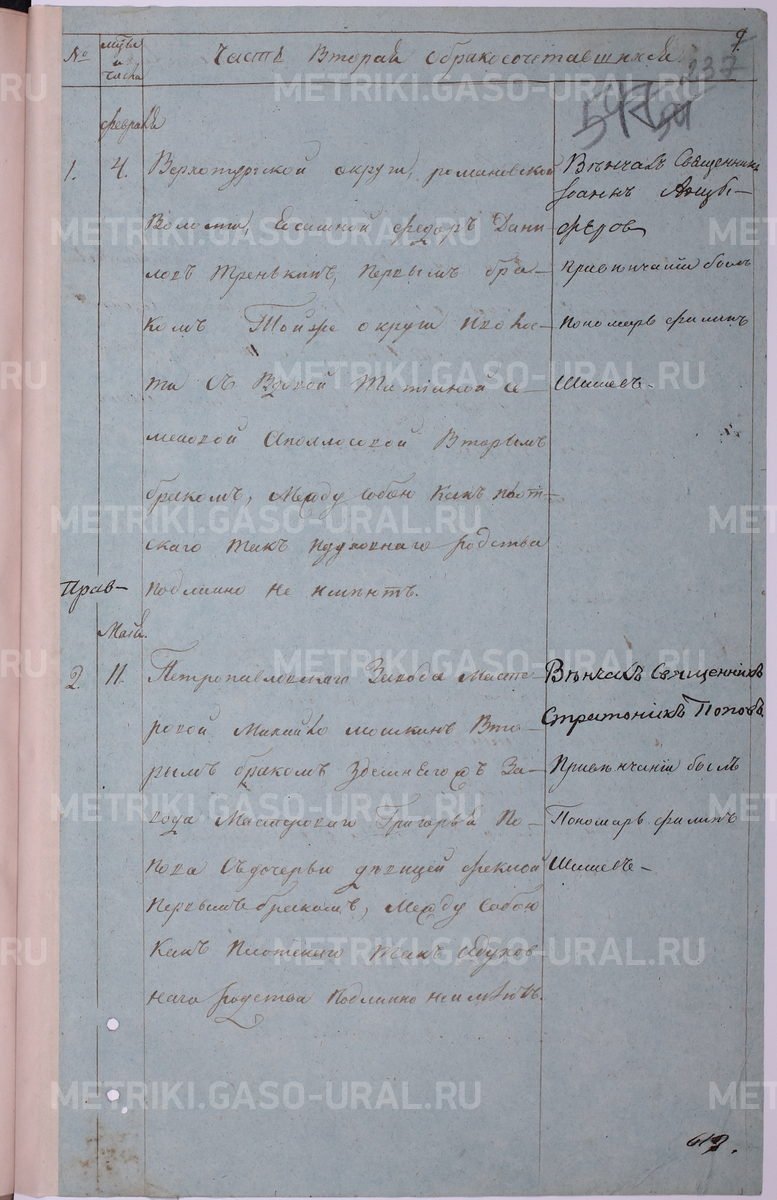 №
мѣсцы
и
числа
Часть Вторая обракосочетавшихся
9
237
февраля
1. 4. Верхотурской округи, романовской
Волости, Ясашной федоръ Дани
ловъ Тренькинъ, первымъ бра-
комъ Тойже округи
та съ Вдовой Татiаной се-
меновой Аполлосовой Вторымъ
бракомъ, Между собою какъ плот-
скаго такъ идуховнаго родства
подлинно не имѣютъ.
Венчалъ Священникъ
Iоаннъ Анцы-
феровъ
Привѣнчанiи былъ
пономарь филипъ
Шишевъ.
Прав-
Маiя.
2. 11. Петропавловскаго Завода Масте-
ровой Михайло мошкинъ Вто-
рымъ бракомъ Здешнегожъ За-
вода Мастероваго Григорья По-
пова Съдочерью дѣвицей феклой
Первымъ бракомъ, Между собою
какъ плотскаго такъ идухов
наго родства подлинно неимѣютъ.
Вѣнчалъ Священникъ
Стратоникъ Поповъ
Привѣнчанiи былъ
Пономарь филипъ
Шишевъ-
METRIKI.GASO-URAL.RU